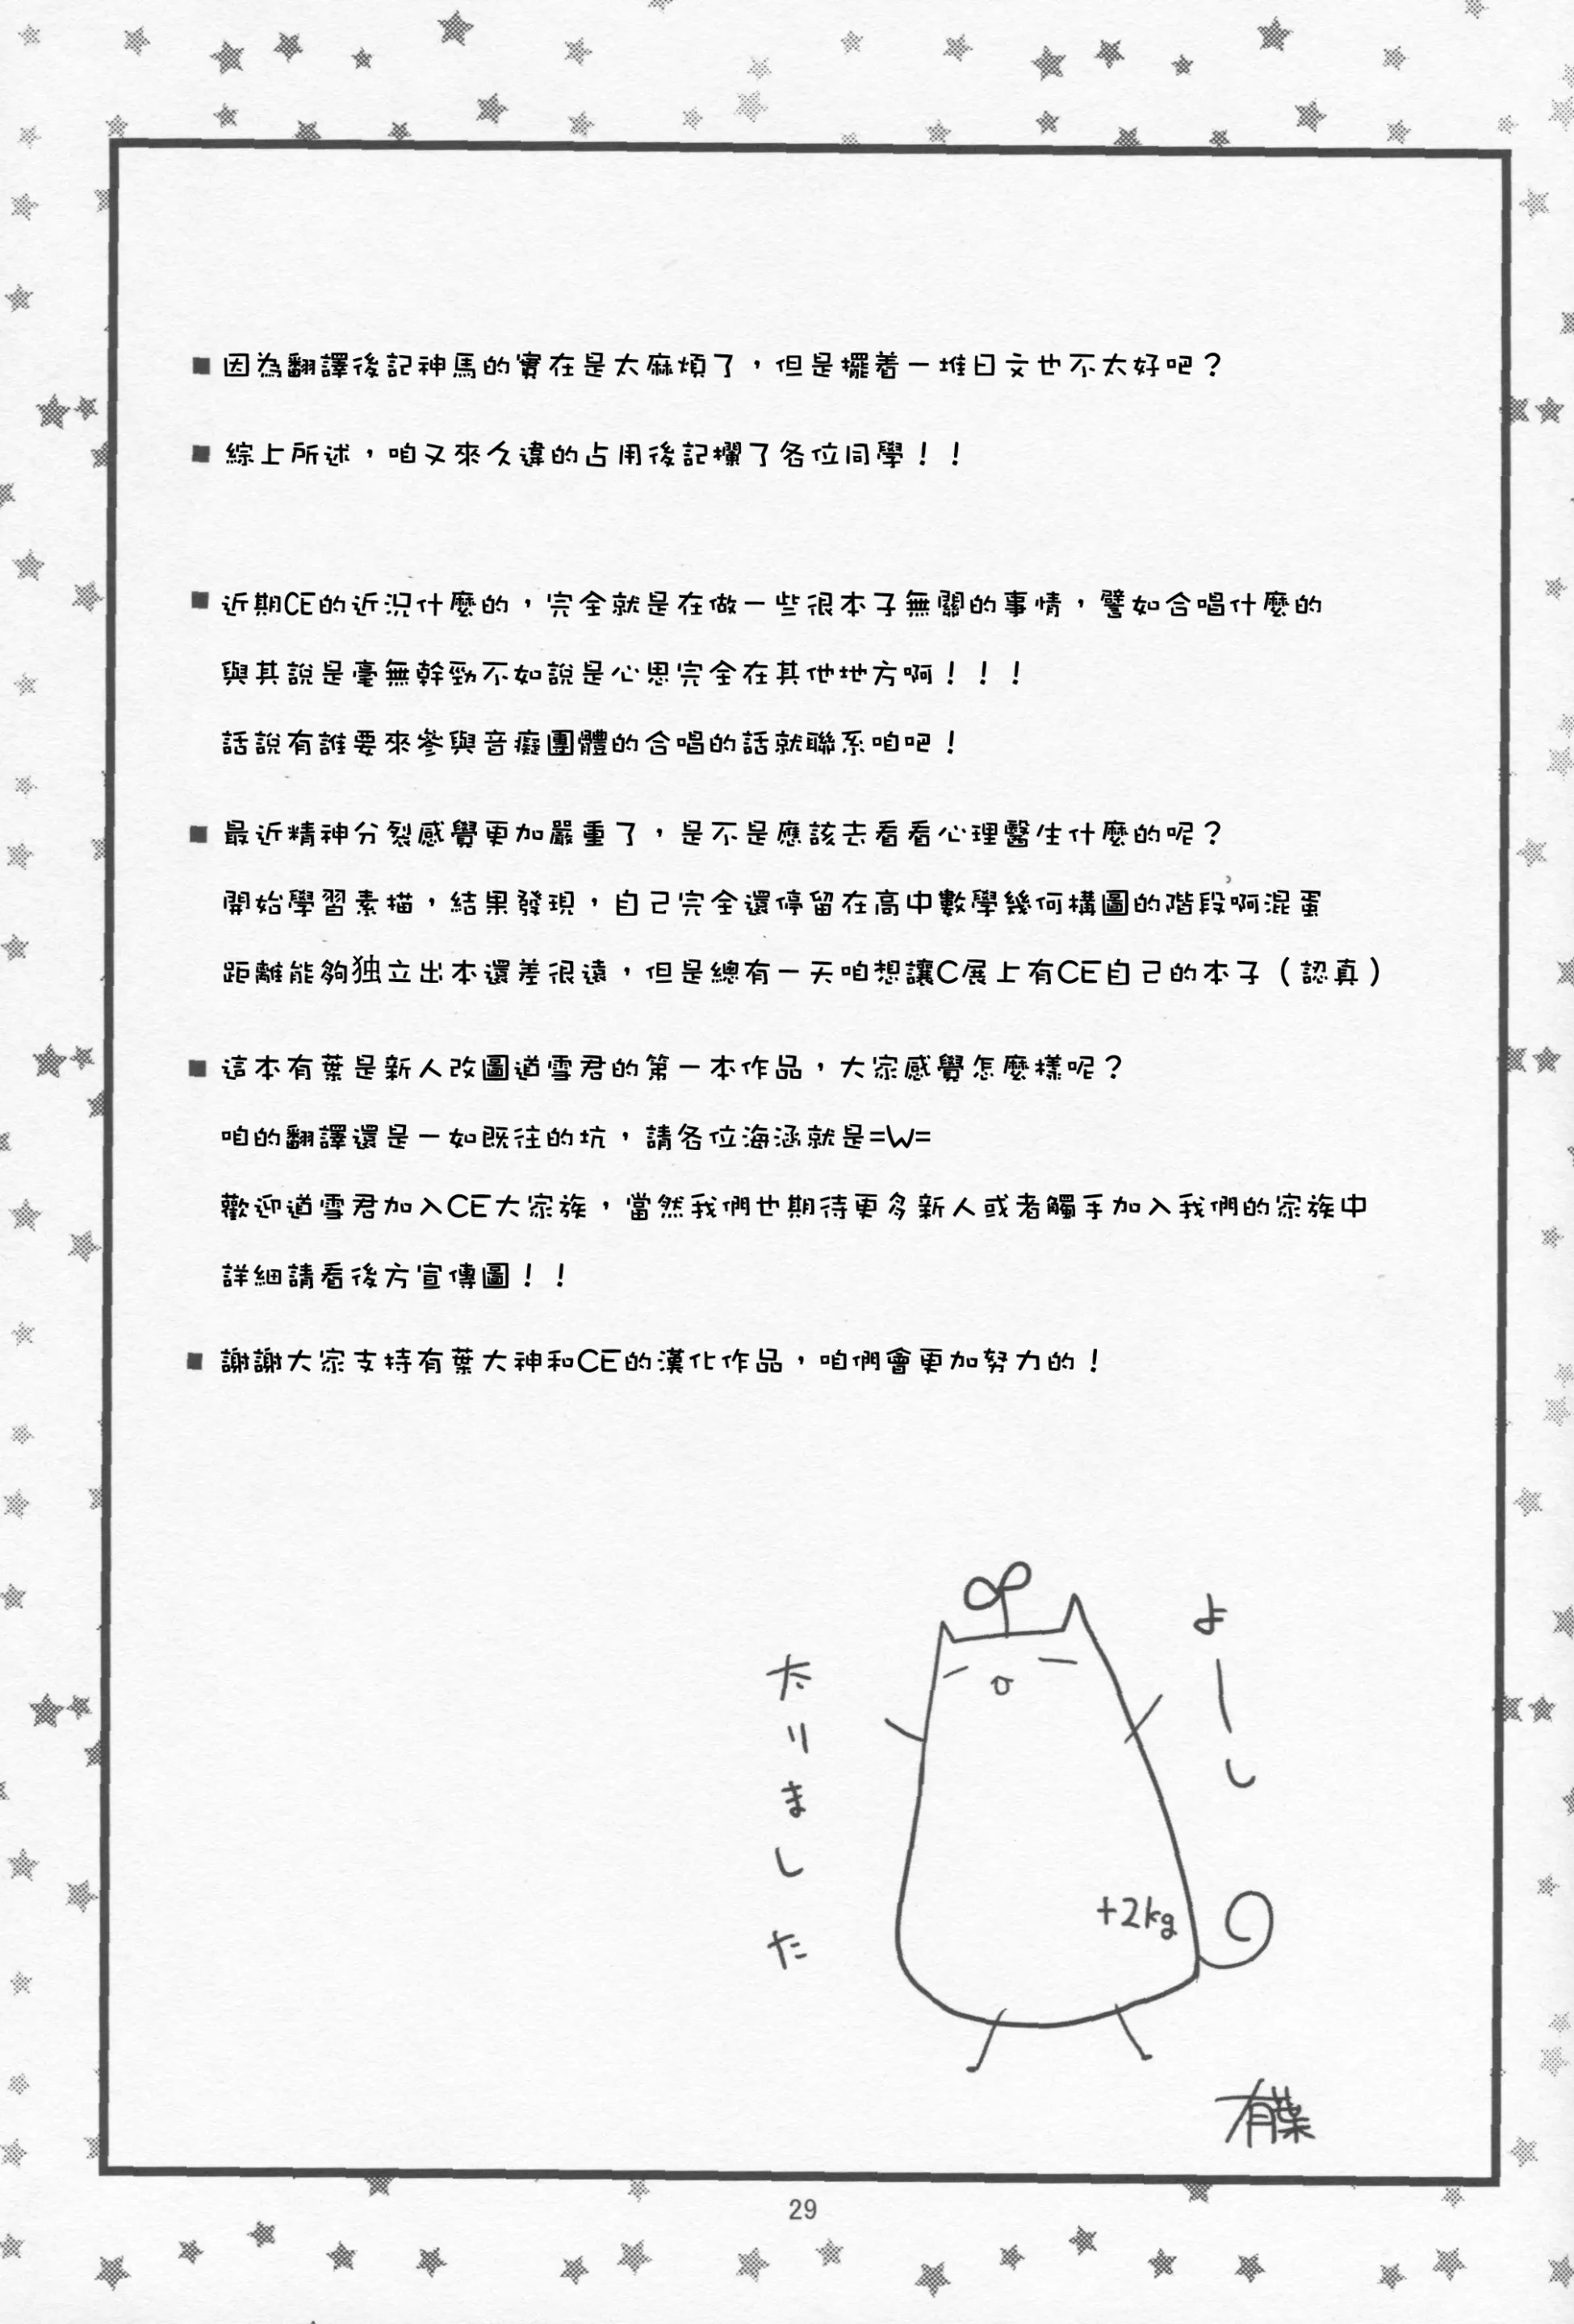 ■因為翻譯後記神馬的實在是太麻煩了，但是擺着一堆日文也不太好吧？
■綜上所述，咱又來久違的占用後記欄了各位同學！！
■近期CE的近況什麼的，完全就是在做一些很本子無關的事情，譬如合唱什麼的
與其說是毫無幹勁不如說是心思完全在其他地方啊！！！
話說有誰要來參與音癡團體的合唱的話就聯系咱吧！
■最近精神分裂感覺更加嚴重了，是不是應該去看看心理醫生什麼的呢？
開始學習素描，結果發現，自己完全還停留在高中數學幾何構圖的階段啊混蛋
距離能夠独立出本還差很遠，但是總有一天咱想讓C展上有CE自己的本子（認真）
■這本有葉是新人改圖道雪君的第一本作品，大家感覺怎麼樣呢？
咱的翻譯還是一如既往的坑，請各位海涵就是=W=
歡迎道雪君加入CE大家族，當然我們也期待更多新人或者觸手加入我們的家族中
詳細請看後方宣傳圖！！
■謝謝大家支持有葉大神和CE的漢化作品，咱們會更加努力的！
よーし
たりました
+2kg
有葉
29